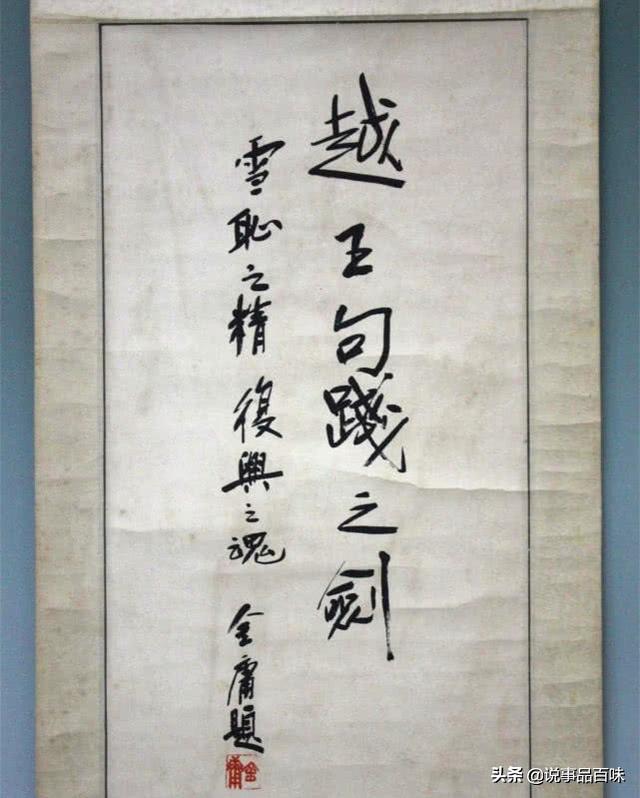 越王句踐之劍
雪恥之精 復興之魂 金庸題
金庸
头条 @说事品百味